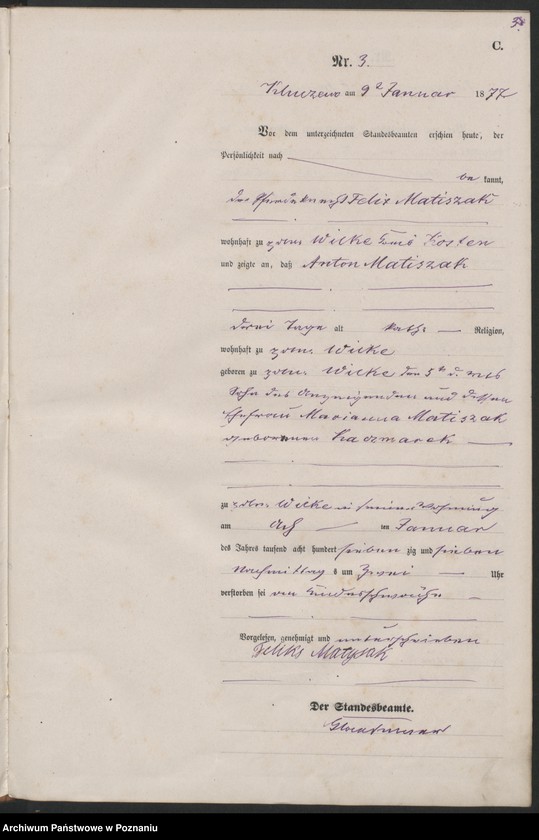 3.
C.
Nr. 3.
Kluczewo am 9 Januar 1877
Vor dem unterzeichneten Standesbeamten erschien heute, der
Persönlichkeit nach
be kannt,
der Pferdeknecht Felix Matiszak
wohnhaft zu Wilke Kosten
und zeigte an, daß Anton Matiszak
drei Tage alt kath. Religion,
wohnhaft zu Wilke
geboren zu Wilke den 5
Sohn des Anzeigenden und dessen
Ehefrau Marianna Matiszak
geborenen Kaczmarek
zu Wilke in seiner Wohnung
am acht ten Januar
des Jahres tausend acht hundert sieben zig und sieben
Nachmittag s um zwei Uhr
verstorben sei
Vorgelesen, genehmigt und unterschrieben
Feliks Matysak
Der Standesbeamte.
Archiwum Państwowe w Poznaniu